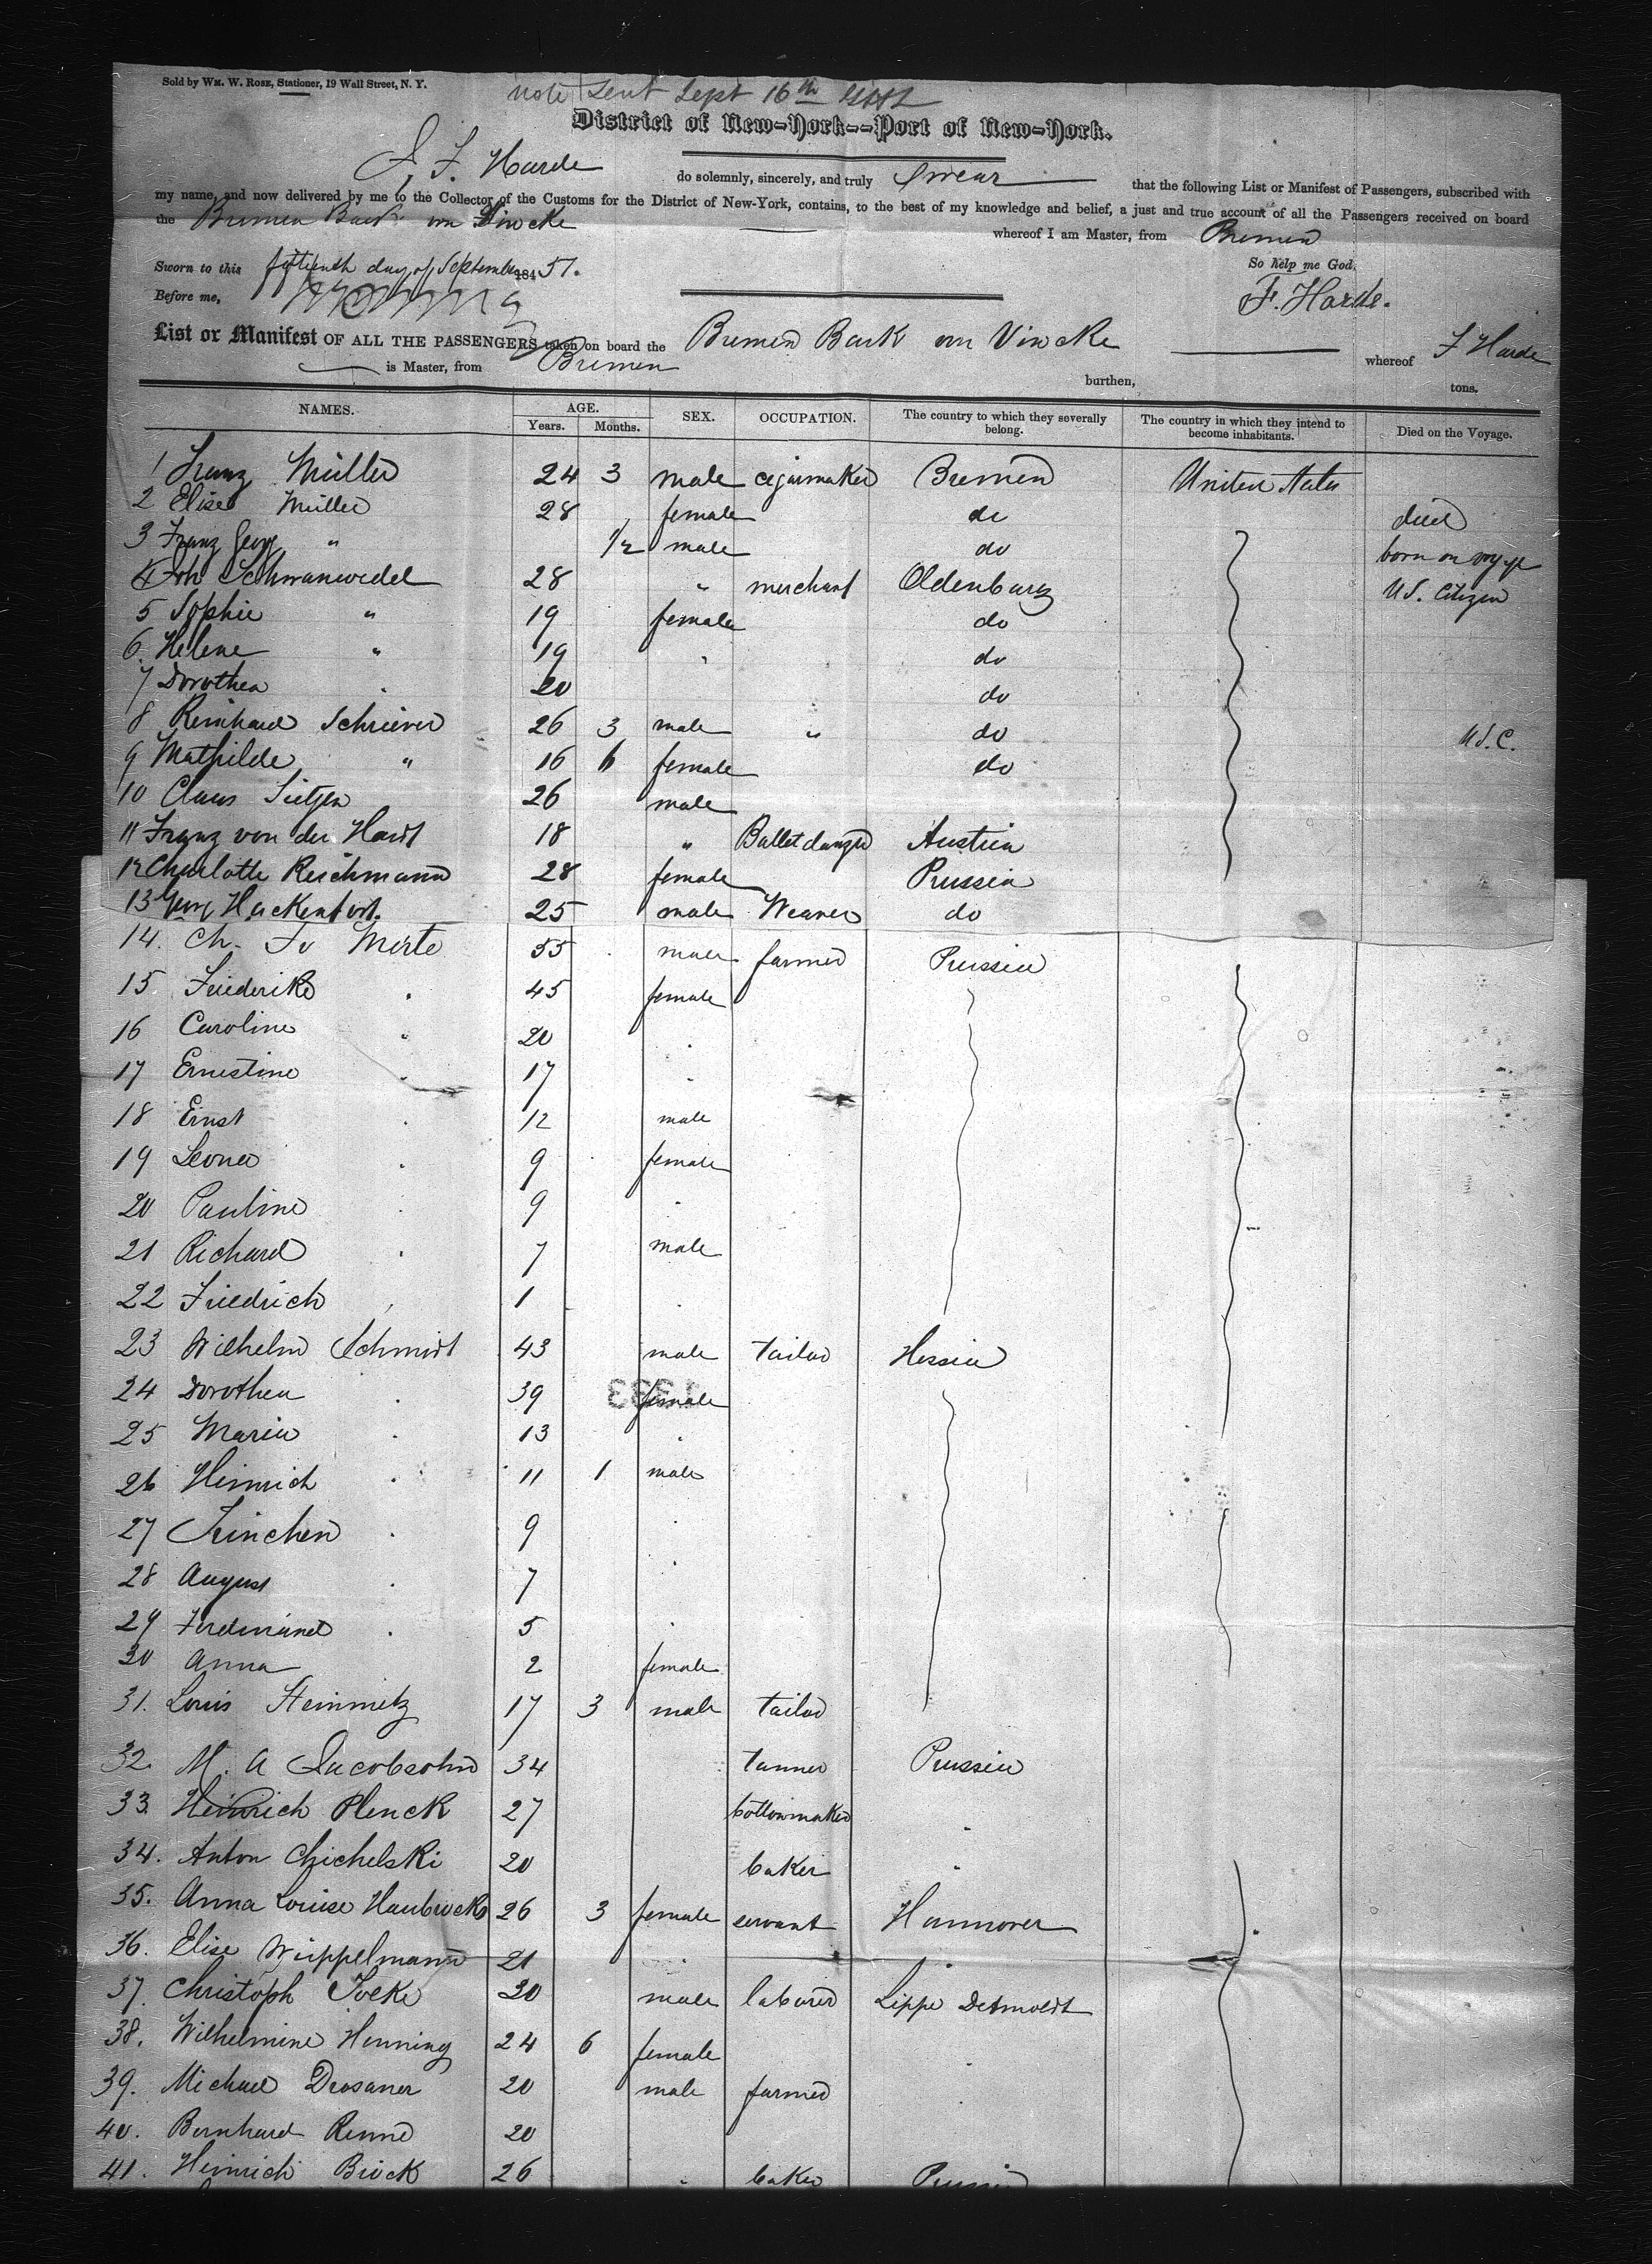 Sold by WM. W. ROSE, Stationer, 19 Wall Street, N. Y.
note sent Sept 16th
District of New-York--Port of New-York.
I, F. Harde do solemnly, sincerely, and truly swear that the following List or Manifest of Passengers, subscribed with
my name, and now delivered by me to the Collector of the Customs for the District of New-York, contains, to the best of my knowledge and belief, a just and true account of all the Passengers received on board
the Bremen Bark von Vincke whereof I am Master, from Bremen
Sworn to this fifteenth day of September 184 51. So help me God.
Before me, F. Harde.
List or Manifest OF ALL THE PASSENGERS taken on board the Bremen Bark von Vincke whereof F Harde
is Master, from Bremen burthen, tons.
NAMES. AGE. SEX. OCCUPATION. The country to which they severally belong. The country in which they intend to become inhabitants. Died on the Voyage.
Years. Months.
1 Franz Müller 24 3 male cigarmaker Bremen United States
2 Elise Müller 28 female do died
3 Franz Georg " 1/2 male do born on voyage
4 Joh Schwanwedel 28 " merchant Oldenburg U.S. Citizen
5 Sophie " 19 female do
6. Helene " 19 " do
7 Dorothea " 20 do
8 Reinhard Schriever 26 3 male " do U.S.C.
9 Mathilde " 16 6 female do
10 Claus Sietjen 26 male
11 Franz von der Hardt 18 " Ballet danzer Austria
12 Charlotte Reichmann 28 female Prussia
13 Georg Hackenfort. 25 male Weaver do
14. Ch. Fr Mirte 55 male farmer Prussia
15 Friederike " 45 female
16 Caroline " 20 "
17 Ernestine " 17 "
18 Ernst " 12 male
19 Leona " 9 female
20 Pauline " 9 "
21 Richard " 7 male
22 Friedrich " 1 "
23 Wilhelm Schmidt 43 male tailor Hessia
24 Dorothea " 39 female
25 Maria " 13 "
26 Heinrich " 11 1 male
27 Trinchen " 9 "
28 August " 7 "
29 Ferdinand " 5 "
30 Anna 2 female
31. Louis Steinmetz 17 3 male tailor
32. M. A Jacobsohn 34 tanner Prussia
33. Heinrich Plenck 27 bottonmaker "
34. Anton Chichelski 20 baker "
35. Anna Louise Haubrock 26 3 female servant Hannover
36. Elise Wippelmann 21 " "
37. Christoph Focke 20 male laborer Lippe Detmoldt
38. Wilhelmine Henning 24 6 female "
39. Michael Drosaner 20 male farmer "
40. Bernhard Renne 20
41. Heinrich Brock 26 " baker Prussia